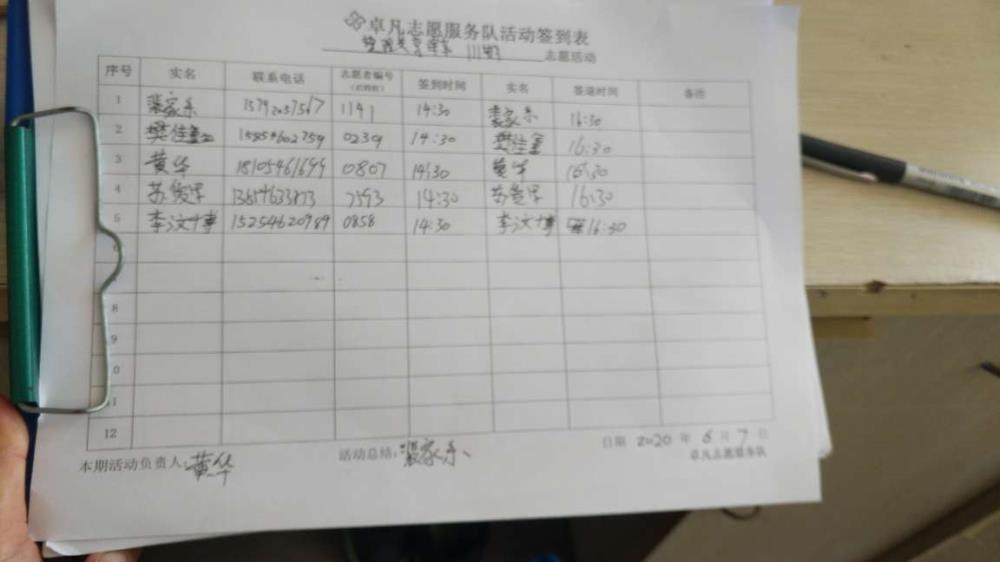 卓凡志愿服务队活动签到表
111期 志愿活动
序号 实名 联系电话 志愿者编号 签到时间 实名 签退时间 备注
(后四位)
1 裴家乐 15792057567 1141 14:30 裴家乐 16:30
2 樊佳鑫 15854602759 0239 14:30 樊佳鑫 16:30
3 黄华 18105461699 0807 14:30 黄华 16:30
4 苏 14:30 苏 16:30
5 李汶博 15254620989 0858 14:30 李汶博 16:30
8
9
12
日期 2020 年 6 月 7 日
本期活动负责人:黄华 活动总结:裴家乐 卓凡志愿服务队